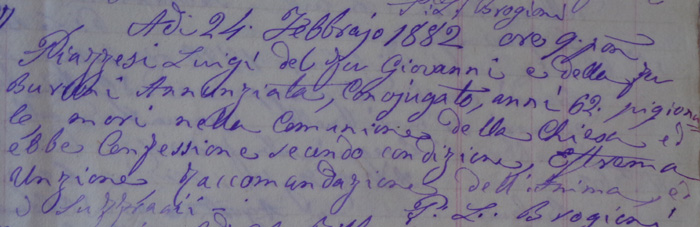 P. L. Brogioni
Adì 24. Febbrajo 1882 ore 9. pom
Piazzesi Luigi del fu Giovanni e della fu
Buroni Annunziata, Conjugato, anni 62. pigiona
le, morì nella Comunione della Chiesa ed
ebbe Confessione secondo condizione, Estrema
Unzione, raccomandazione dell'Anima, e
i Suffragi –
P. L. Brogioni